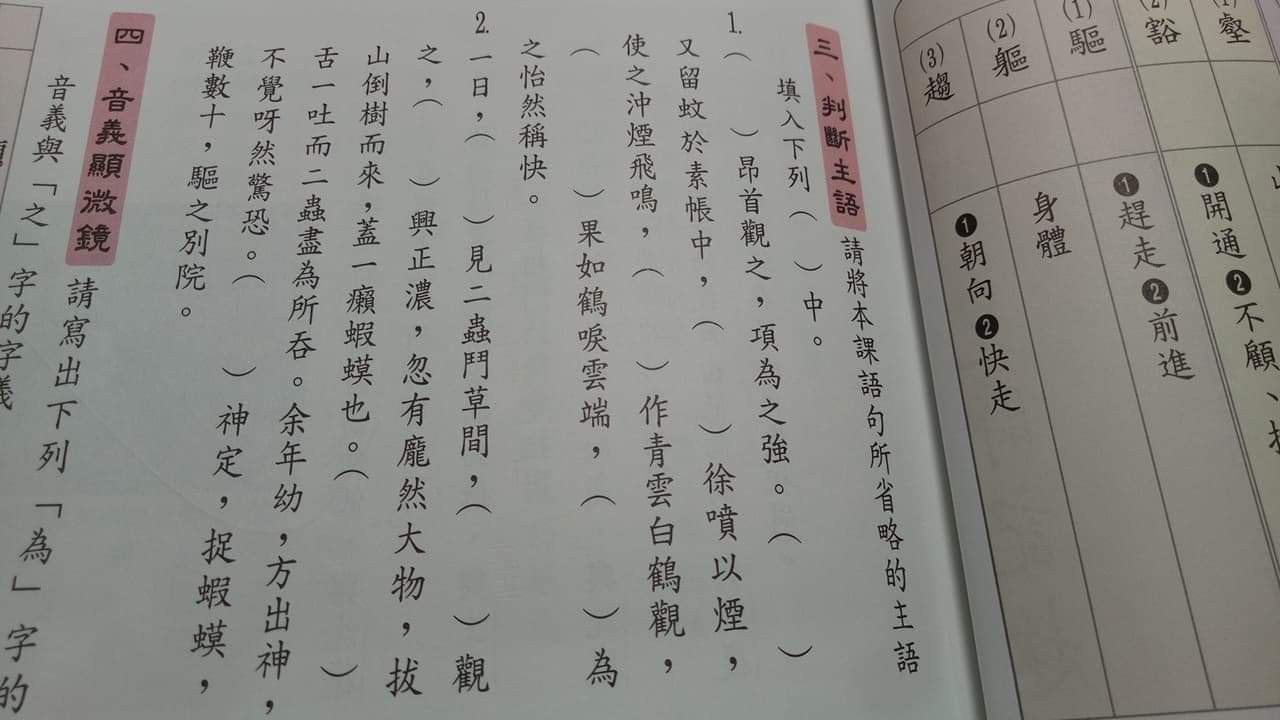 (1)壑
(2)豁 ❶開通❷不顧、
(1)驅 ❶趕走❷前進
(2)軀 身體
(3)趨 ❶朝向❷快走
三、判斷主語 請將本課語句所省略的主語
填入下列（　）中。
1.（　）昂首觀之，項為之強。（　）
又留蚊於素帳中，（　）徐噴以煙，
使之沖煙飛鳴，（　）作青雲白鶴觀，
（　）果如鶴唳雲端，（　）為
之怡然稱快。
2.一日，（　）見二蟲鬥草間，（　）觀
之，（　）興正濃，忽有龐然大物，拔
山倒樹而來，蓋一癩蝦蟆也。（　）
舌一吐而二蟲盡為所吞。余年幼，方出神，
不覺呀然驚恐。（　）神定，捉蝦蟆，
鞭數十，驅之別院。
四、音義顯微鏡 請寫出下列「為」字的
音義與「之」字的字義